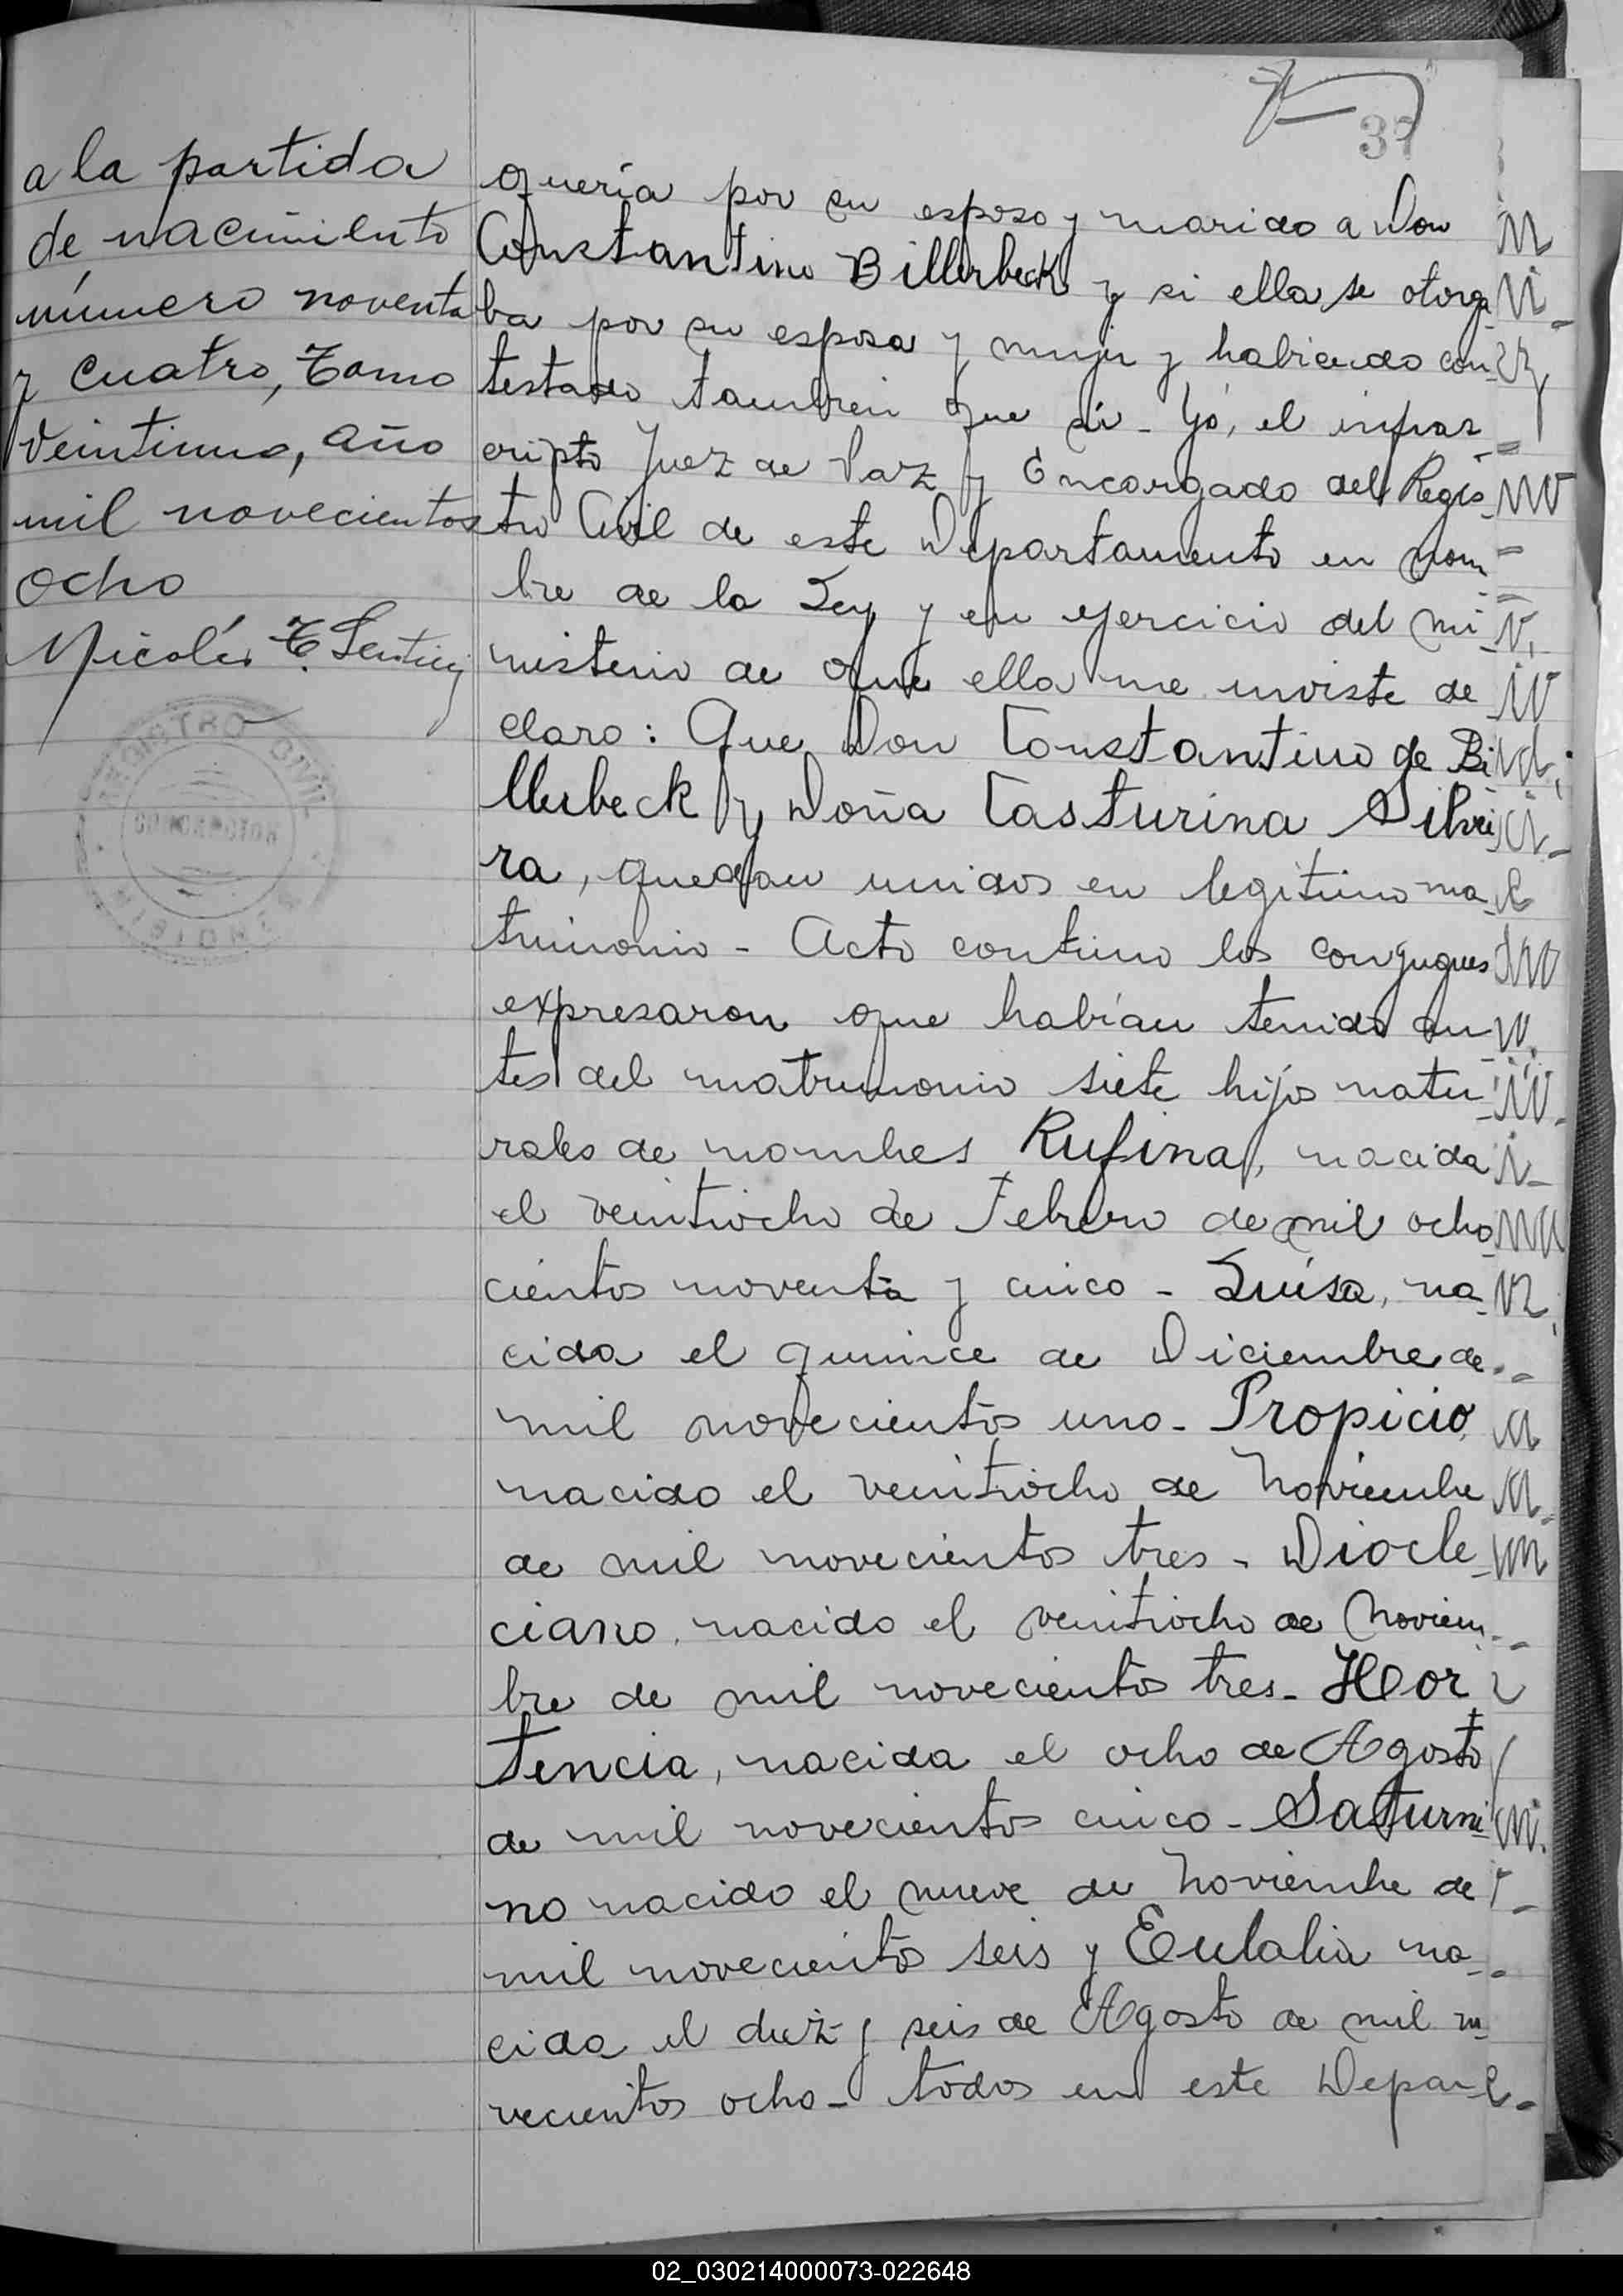 37
a la partida
de nacimiento
número noventa
y cuatro, Tomo
veintiuno, año
mil novecientos
ocho
Nicolás T.
REGISTRO CIVIL
MISIONES
quería por su esposo y marido a Don
Constantino Billerbeck y si ella se otorga
ba por su esposa y mujer y habiendo con
testado tambien que sí - Yó, el infras
cripto Juez de Paz y Encargado del Regis
tro Civil de este Departamento en nom
bre de la Ley y en ejercicio del mi
nisterio de que ella me inviste de
claro: Que Don Constantino de Bi
llerbeck y Doña Casturina Silvei
ra, quedan unidos en legitimo ma
trimonio - Acto continuo los conyugues
expresaron que habían tenido an
tes del matrimonio siete hijos natu
rales de nombres Rufina, nacida
el veintiocho de Febrero de mil ocho
cientos noventa y cinco - Luisa, na
cida el quince de Diciembre de
mil novecientos uno - Propicio,
nacido el veintiocho de Noviembre
de mil novecientos tres - Diocle
ciano, nacido el veintiocho de Noviem
bre de mil novecientos tres - Hor
tencia, nacida el ocho de Agosto
de mil novecientos cinco - Saturni
no nacido el nueve de Noviembre de
mil novecientos seis y Eulalia na
cida el diez y seis de Agosto de mil no
vecientos ocho - todos en este Depar
02_030214000073-022648